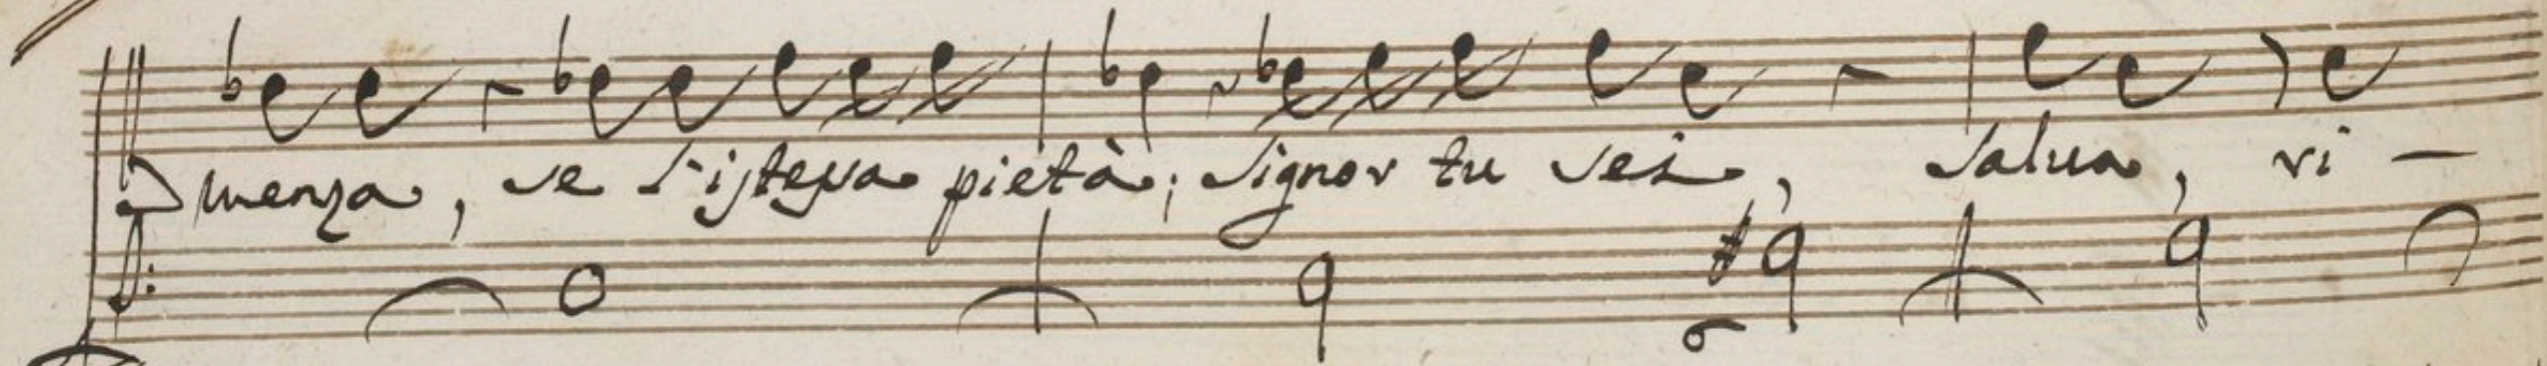 menza, se l'istessa pietà; Signor tu sei, Salua, ri —
6